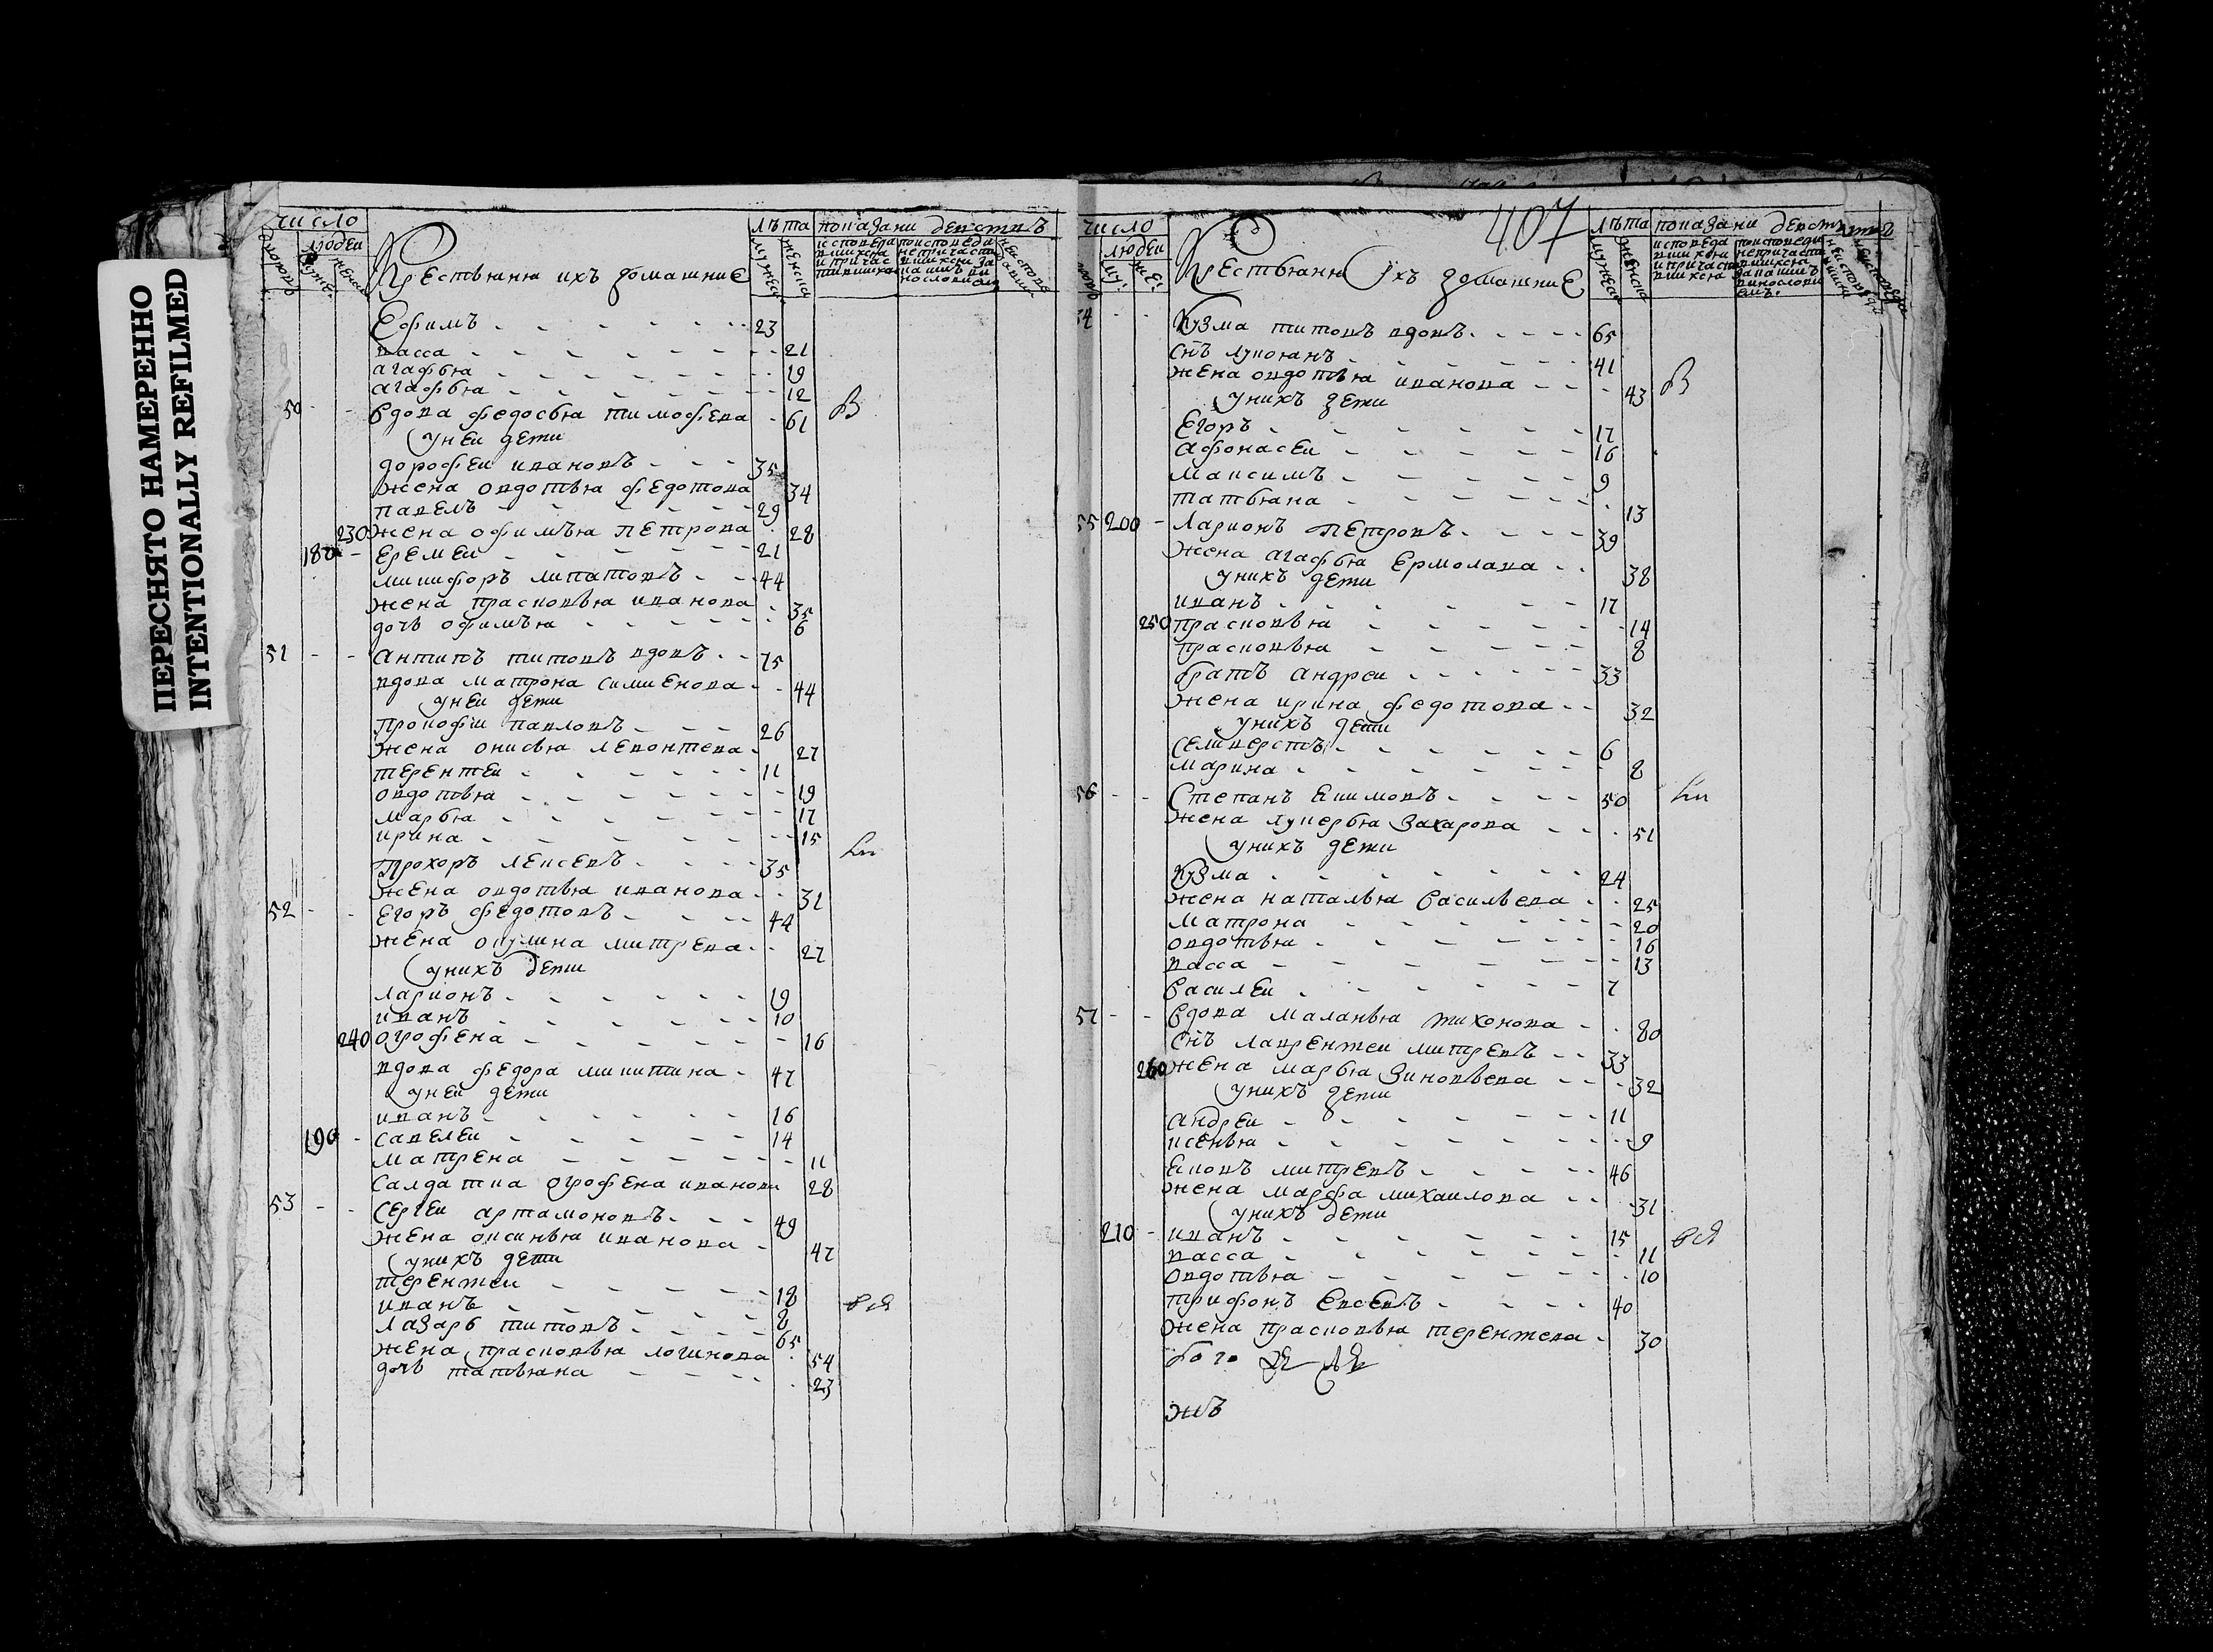 ПЕРЕСНЯТО НАМЕРЕННО
INTENTIONALLY REFILMED
число
людеи
лѣта показани деиствъ
Крестьяня ихъ домашние
Ефимъ 23
васса 21
агафья 19
агафья 12
50 Вдова федосья тимофева 61
у неи дети
дорофеи ивановъ 35
жена овдотья федотова 34
павелъ 29
230 жена офимья петрова 28
180 еремеи 21
никифоръ липатовъ 44
жена прасковья иванова 35
дочь офимья 6
51 Антипъ титовъ вдовъ 75
вдова матрона симиенова 44
у неи дети
прокофи павловъ 26
жена онисья левонтева 27
терентеи 11
овдотья 19
марья 17
ирина 15
Прохоръ лексевъ 35
жена овдотья иванова 31
52 Егоръ федотовъ 44
жена окулина митрева 27
у нихъ дети
ларионъ 19
иванъ 10
240 огрофена 16
вдова федора микитина 47
у неи дети
иванъ 16
190 савелеи 14
матрена 11
салдатка огрофена иванова 28
53 Сергеи артамоновъ 49
жена оксинья иванова 47
у нихъ дети
терентеи 18
иванъ 8
лазарь титовъ 65
жена прасковья логинова 54
дочь татьяна 23
407
число
людеи
лѣта показани деиств
Крестьяня ихъ домашние
54 Кузма титовъ вдовъ 65
снъ лукоянъ 41
жена овдотья иванова 43
у нихъ дети
Егоръ 17
Афонасеи 16
максимъ 9
татьяна 13
55 200 Ларионъ петровъ 39
жена агафья Ермолава 38
у нихъ дети
иванъ 17
250 прасковья 14
прасковья 8
братъ андреи 33
жена ирина федотова 32
у нихъ дети
селиверстъ 6
марина 8
56 Степанъ екимовъ 50
жена лукерья Захарова 51
у нихъ дети
Кузма 24
жена наталья Васильева 25
матрона 20
овдотья 16
васса 13
Василеи 7
57 Вдова маланья тихонова 80
снъ лаврентеи митревъ 33
260 жена марья Зиновьева 32
у нихъ дети
андреи 11
ксенья 9
Яковъ митревъ 46
жена марфа михаилова 31
у нихъ дети
210 иванъ 15
васса 11
овдотья 10
трифонъ Евсевъ 40
жена прасковья терентева 30